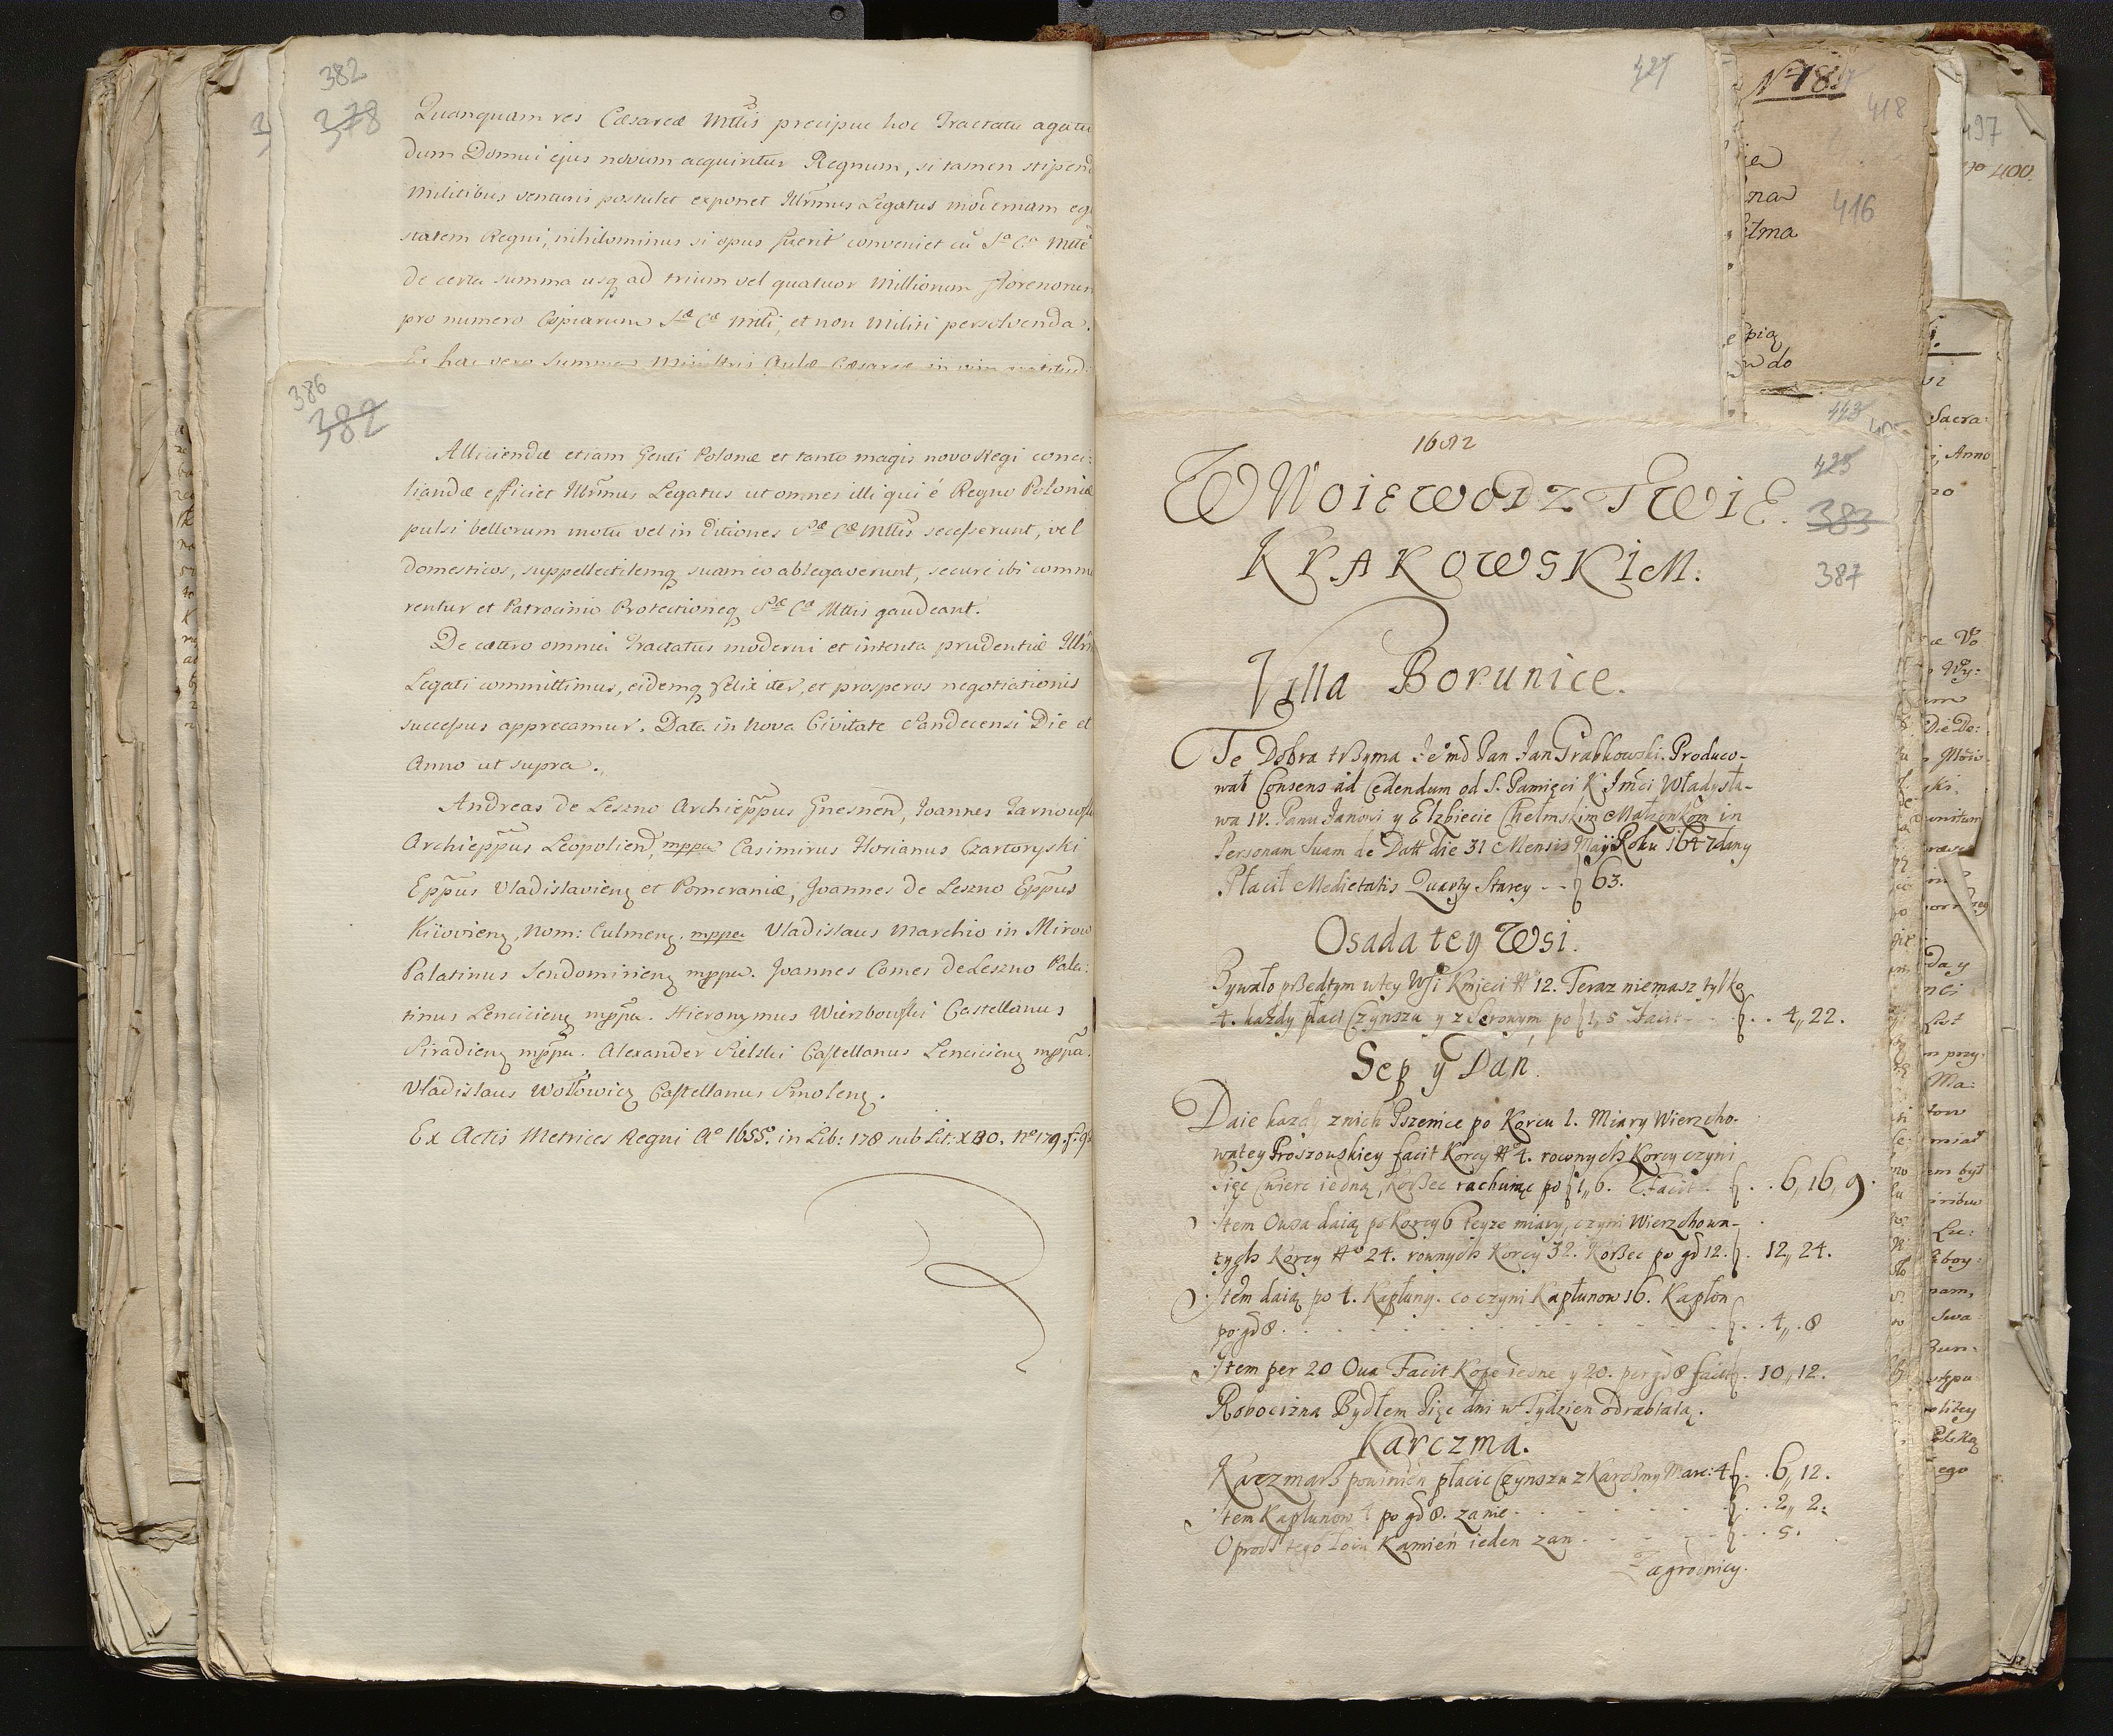 382
378
Quanquam res Cæsareæ Mttis precipue hoc Tractatu agatu
dum Domui ejus novum acquiritur Regnum, si tamen stipend
militibus venturis postulet exponet Illrmus Legatus modernam ege
statem Regni, nihilominus si opus fuerit conveniet cū Sa Ca Mtte
de certa summa usq ad trium vel quatuor Millionum florenorum
pro numero Copiarum Sæ Cæ Mtti, et non Militi persolvenda.
Ex hac vero summa Ministris Aulæ Cæsareæ in vim
386
382
Alliciendæ etiam Genti Polonæ et tanto magis novo Regi conci:
liandæ efficiet Illrmus Legatus ut omnes illi qui é Regno Poloniæ
pulsi bellorum motu vel in Ditiones Sæ Cæ Mttis secesserunt, vel
domesticos, suppellectilemq suam eo ablegaverunt, securé ibi commo
rentur et Patrocinio Protectioneq Sæ Cæ Mttis gaudeant.
De cætero omnia Tractatus moderni et intenta prudentiæ Illrm
Legati committimus, eidemq felix iter, et prosperos negotiationis
successus apprecamur. Data in Nova Civitate Sandecensi Die et
Anno ut supra.
Andreas de Leszno Archieppus Gnesnen, Joannes Tarnowsk
Archieppus Leopolien, mppa Casimirus Florianus Czartoryski
Eppus Vladislavienȝ et Pomeraniæ, Joannes de Leszno Eppus
Kiiovienȝ, Nom: Culmenȝ. mppa Vladislaus Marchio in Mirow
Palatinus Sendomirienȝ mppa. Joannes Comes de Leszno Pala:
tinus Lencicienȝ mppa. Hieronymus Wierzbowski Castellanus
Siradienȝ mppa. Alexander Sielski Castellanus Lencicienȝ mppa.
Vladislaus Wołłowicz Castellanus Smolenȝ.
Ex Actis Metrices Regni Ao 1655o. in Lib: 178 sub Lit:
427
418
416
na
ełma
pią
do
400
397
1682
W WOIEWODZTWIE
KRAKOWSKIM:
423
383
387
Villa Borunice.
Te Dobra trzyma Jemd Pan Jan Grabkowski. Produco-
wał Consens ad Cedendum od S. Pamięci K Jmci Władysła-
wa IV. Panu Janowi y Elzbiecie Chełmskim Małzonkom in
Personam Suam de Datt die 31 Mensis Maij Roku 1647 dany
Płacił Medietatis Quarty Starey - - f 63.
Osada tey Wsi.
Bywało przedtym wtey Wsi Kmieci No 12. Teraz niemasz tylko
4. kazdy płaci Czynszu y z Seronym po f 1, 5 Facit - - f. . 4,, 22.
Sep y Dan.
Daie kazdy znich Pszenice po Korcu 1. Miary Wierzcho-
watey Proszowskiey facit Korcy No 4. rownych Korcy czyni
Pięc cwierc iedną, Korzec rachuiąc po f 1,, 6. Facit . f. . 6, 16, 9.
Item Owsa daią po Korcy 6 teyze miary, czyni Wierzchowa-
tych Korcy No 24. rownych Korcy 32. Korzec po gd 12. f. 12,, 24.
Item daią po 4. Kapłuny. co czyni Kapłunow 16. Kapłon
po gd 8. . . . . . f. . 4,, . 8
Item per 20 Oua Facit Kopę iednę y 20. per gd 8 facit f. 10,, 12.
Robocizna Bydłem Pięc dni w Tydzien odrabiaią.
Karczma.
Karczmarz powinien płacic Czynszu z Karczmy Marc: 4 f. . 6,, 12.
Item Kapłunow po gd 8. zanie . . . . f. . 2,, 2.
Oprocz tego Łoiu Kamień ieden zan . . . . f. . 5.
Zagrodnicy.